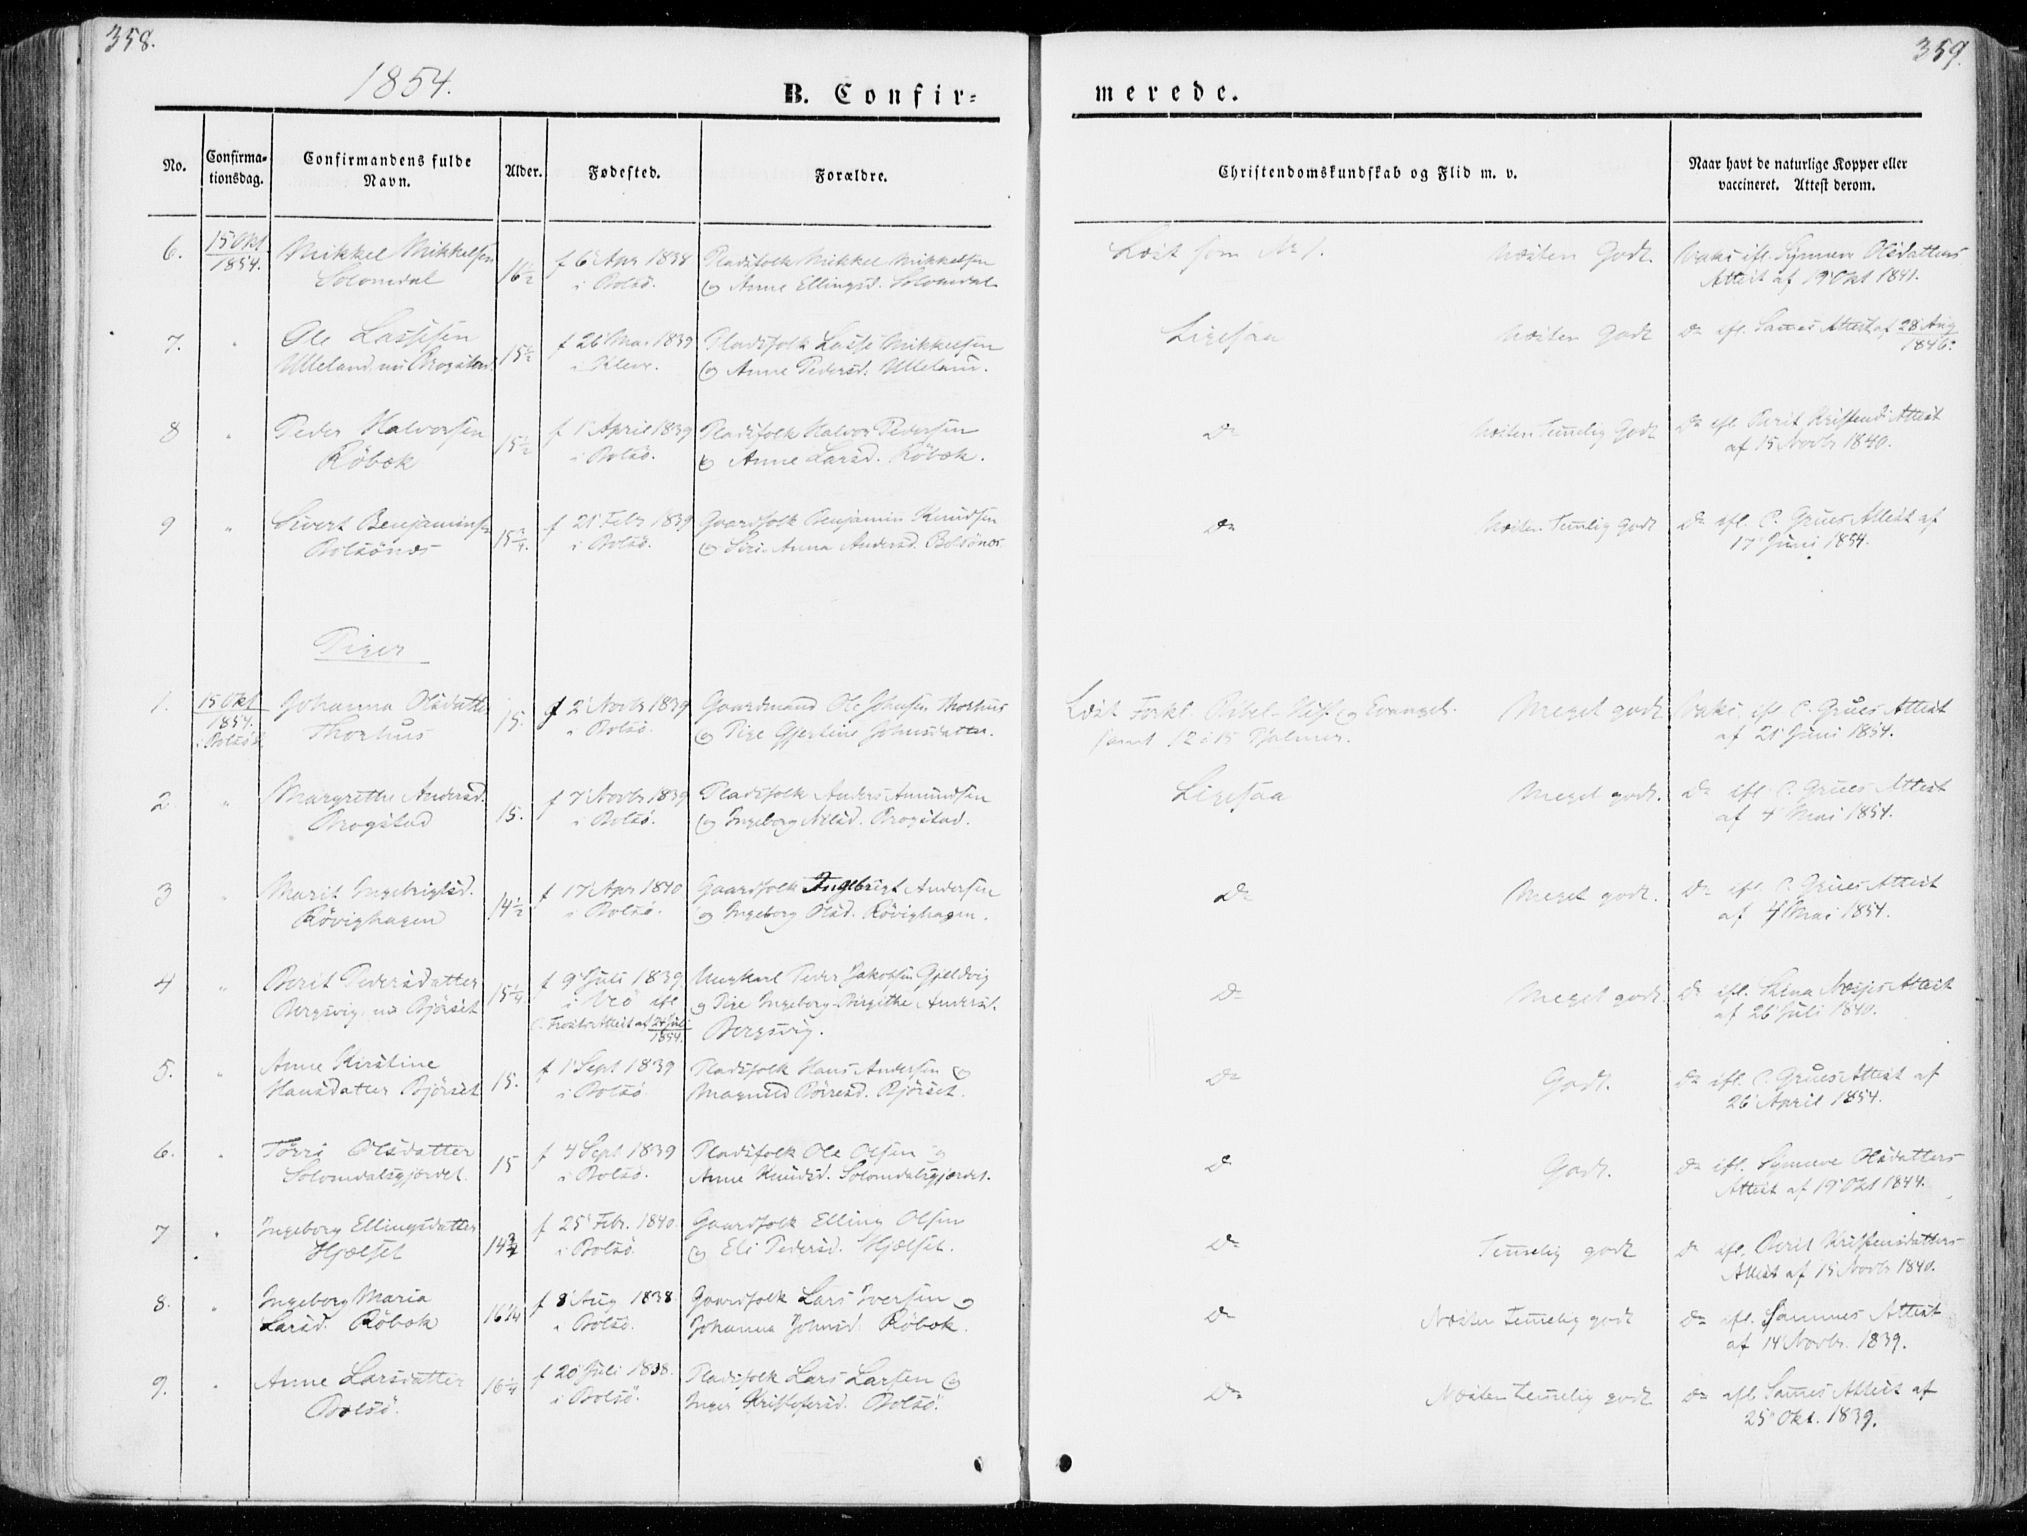 358.
359.
1854.
B. Confir=
merede.
No.
Confirma=
tionsdag.
Confirmandens fulde
Navn.
Alder.
Fødested.
Forældre.
Christendomskundskab og Flid m. v.
Naar havt de naturlige Kopper eller
vaccineret. Attest derom.
6.
15 Okt
1854.
Mikkel Mikkelsen
Solomdal
16½
f 6 Apr 1838
i Bolsö.
Pladsfolk Mikkel Mikkelsen
og Anne Ellingsd. Solomdal
Læst som No 1.
Næsten Godt.
Vaks. ifl. Synneve Olsdatters
Attest af 19 Okt 1841.
7.
"
Ole Lassesen
Ulleland nu Brogstad
15½
f 26 Mar 1839
i Kleve.
Pladsfolk Lasse Mikkelsen
og Anne Pedersd. Ulleland.
Ligesaa
Næsten Godt
Do ifl. Sammes Attest af 28 Aug
1846.
8
"
Peder Halvorsen
Röbek
15½
f 1 April 1839
i Bolsö.
Pladsfolk Halvor Pedersen
og Anne Larsd. Röbek.
Do
Næsten Temelig Godt
Do ifl. Berit Kristensd. Attest
af 15 Novbr 1840.
9
"
Sivert Benjaminsen
Bolsönes
15¾.
f 21 Febr 1839
i Bolsö.
Gaardfolk Benjamin Knudsen
og Siri Anna Andersd. Bolsönes.
Do
Næsten Temelig godt
Do ifl. C. Grües Attest af
17 Juni 1854.
Piger
1.
15 Okt
1854.
i Bolsö K
Johanna Olsdatter
Thorhus
15.
f 2 Novbr 1839
i Bolsö.
Gaardmand Ole Johnsen Thorhus
og Pige Gjertine Johnsdatter.
Læst Forkl. Bibel-Hist. og Evangel.
samt 12 à 15 Psalmer.
Meget godt
Vaks. ifl. C. Grües Attest
af 21 Juni 1854.
2
"
Margrethe Andersd.
Brogstad
15.
f 7 Novbr 1839
i Bolsö.
Pladsfolk Anders Amundsen
og Ingeborg Nilsd. Brogstad.
Ligesaa
Meget godt.
Do ifl. C. Grües Attest
af 4 Mai 1854.
3
"
Marit Ingebrigtsd.
Rövighagen
14½
f 17 Apr 1840
i Bolsö.
Gaardfolk Ingebrigt Andersen
og Ingeborg Olsd. Rövighagen.
Do
Meget godt.
Do ifl. C. Grües Attest
af 4 Mai 1854.
4
"
Berit Pedersdatter
Bergsvig, nu Björset
15¼
f 9 Juli 1839
i Veö ifl
Attest af 24 Juli
1854.
Ungkarl Peder Jakobsen Gjeldvig
og Pige Ingeborg Birgithe Andersd.
Bergsvig.
Do
Meget godt.
Do ifl. Attest
af 26 Juli 1840.
5.
"
Anne Kirstine
Hansdatter Björset
15.
f 1 Sept 1839
i Bolsö
Pladsfolk Hans Andersen og
Magnild Börresd. Björset.
Do
Godt.
Do ifl. C. Grües Attest af
26 April 1854.
6.
"
Törri Olsdatter
Solomdalsgjærdet.
15
f 4 Sept 1839
i Bolsö.
Pladsfolk Ole Olsen og
Anne Knudsd. Solomdalsgjærdet.
Do
Godt.
Do ifl. Synneve Olsdatters
Attest af 19 Okt 1844.
7
"
Ingeborg Ellingsdatter
Hjelset
14¾
f 25 Febr. 1840
i Bolsö
Gaardfolk Elling Olsen
og Eli Pedersd. Hjelset.
Do
Temelig godt
Do ifl. Berit Kristensdatters
Attest af 15 Novbr 1840.
8.
"
Ingeborg Maria
Larsd. Röbek
16¼
f 8 Aug 1838
i Bolsö.
Gaardfolk Lars Iversen og
Johanna Johnsd. Röbek.
Do
Næsten Temelig godt
Do ifl. Sammes Attest
af 14 Novbr. 1839.
9.
"
Anne Larsdatter
Bolsö.
16¼
f 20 Juli 1838.
i Bolsö.
Pladsfolk Lars Larsen og
Inger Kristofersd. Bolsö.
Do
Næsten temelig godt
Do ifl. Sammes Attest af
25 Okt. 1839.